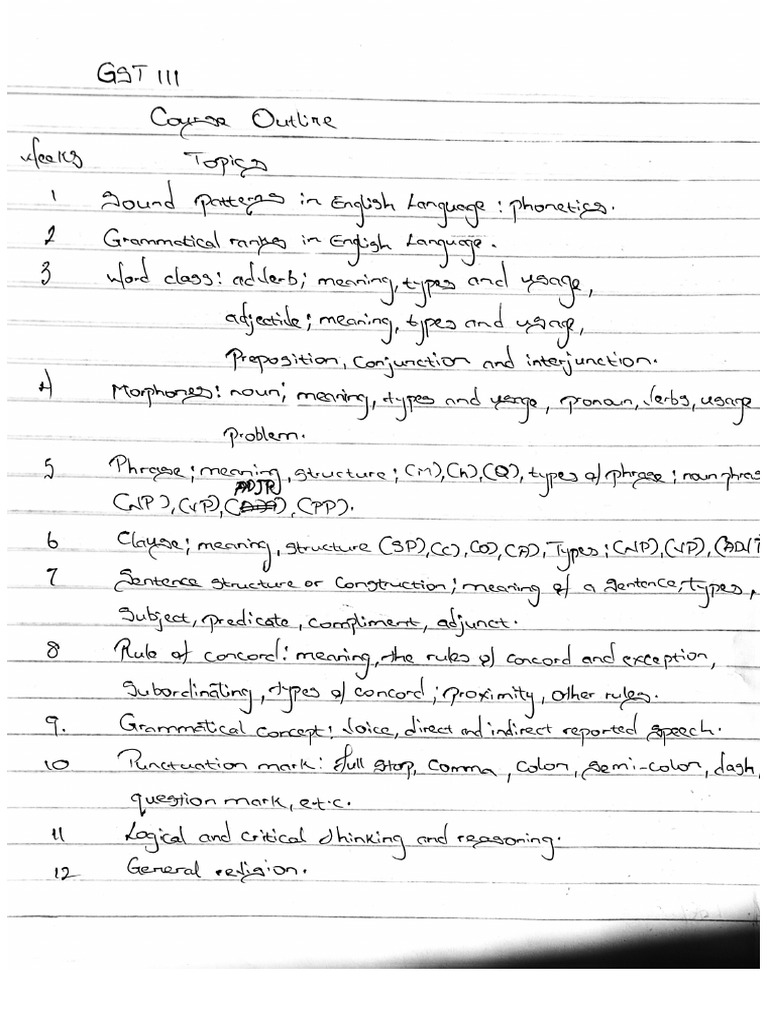 GST 111
Course Outline
Weeks Topics
1 Sound patterns in English Language : phonetics.
2 Grammatical ranks in English Language.
3 Word class: adverb; meaning, types and usage,
adjective; meaning, types and usage,
Preposition, Conjunction and interjunction.
4 Morphones: noun; meaning, types and usage, pronoun, verbs, usage
Problem.
5 Phrase; meaning, structure; (M), (h), (Q), types of phrase; noun phras
ADJP
(NP), (VP), ( ), (PP).
6 Clause; meaning, structure (SP), (C), (O), (A), Types; (NP), (VP), (ADJ
7 Sentence structure or Construction; meaning of a sentence, types,
Subject, predicate, compliment, adjunct.
8 Rule of concord: meaning, the rules of concord and exception,
Subordinating, types of concord; proximity, other rules.
9. Grammatical concept: Voice, direct and indirect reported speech.
10 Punctuation mark: full stop, comma, colon, semi-colon, dash,
question mark, e.t.c.
11 Logical and critical thinking and reasoning.
12 General revision.